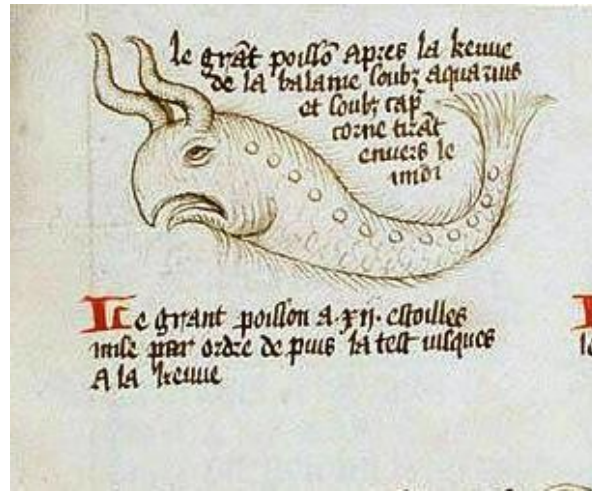 le grãt poissõ apres la keuue
de la balanie soubz aquarius
et soubz cap̃
corne tirãt
enuers le
midi
Le grant poisson a .xij. estoilles
mise par ordre de puis la test iusques
A la keuue
le